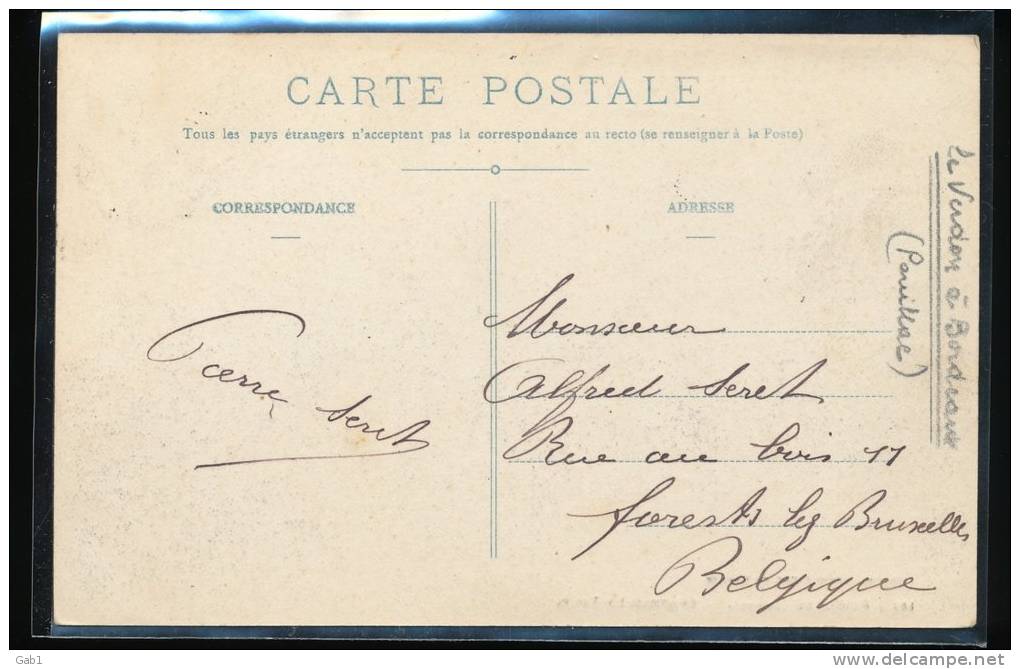 CARTE POSTALE
Tous les pays étrangers n'acceptent pas la correspondance au recto (se renseigner à la Poste)
CORRESPONDANCE
ADRESSE
Pierre Seret
Monsieur
Alfred Seret
Rue au bois 11
forests lez Bruxelles
Belgique
le Verdon à Bordeaux
(Pauillac)
Gab1
www.delcampe.net